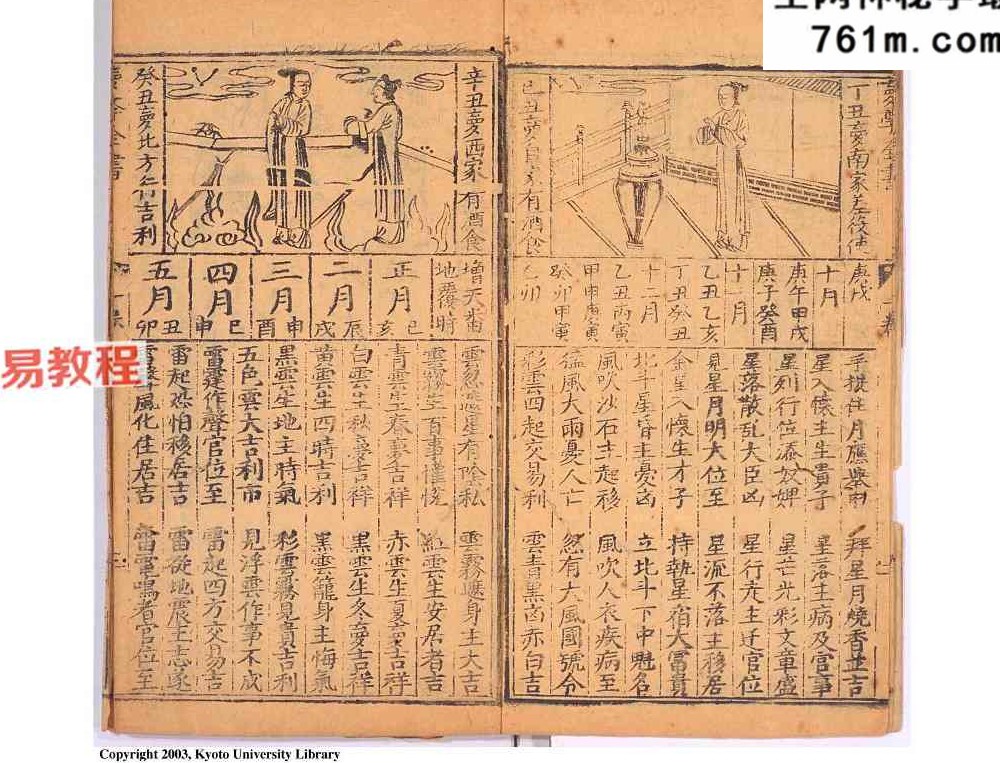 761m.com
丁丑夢南家差役使
有酒食
庚戌
十月
庚午甲戌
庚子癸酉
十一月
乙丑乙亥
丁丑癸丑
十二月
乙丑丙寅
甲申庚寅
癸卯甲寅
乙卯
星入懷主生貴子
星落主病及官事
星列行位添奴婢
星芒光彩文章盛
星落散乱大臣凶
星行走主迁官位
見星月明大位至
星流不落主移居
金星入懷生才子
持執星宿大富貴
北斗星昏主憂凶
立北斗下中魁名
風吹沙石主起移
風吹人衣疾病至
猛風大雨憂人亡
忽有大風國號令
彩雲四起交易利
雲青黑凶赤白吉
辛丑夢西家有酒食
癸丑夢北方
吉利
增天番
地覆時
正月
巳
亥
二月
辰
戌
三月
申
酉
四月
巳
申
五月
丑
卯
有陰私
身主大吉
百事
紅雲生安居者吉
青雲生春夢吉祥
赤雲生夏夢吉祥
白雲生秋夢吉祥
黑雲生冬夢吉祥
黃雲生四時吉利
黑雲籠身主悔氣
黑雲生地主時氣
彩雲霧見貴吉利
五色雲大吉利市
見浮雲作事不成
作聲官位至
雷起四方交易吉
雷起恐怕移居吉
雷從地震主志遂
風化住居吉
雷電鳴者官位至
易教程
Copyright 2003, Kyoto University Library